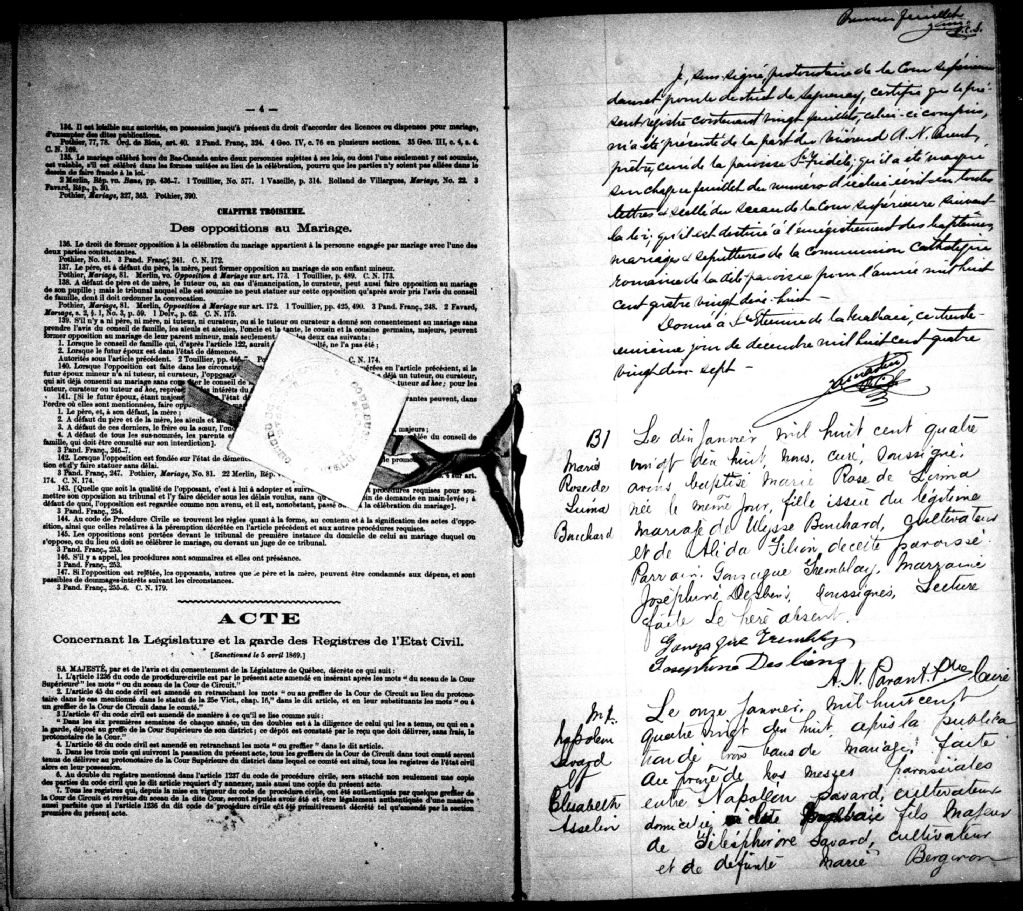 — 4 —
134. Il est loisible aux autorités, en possession jusqu'à présent du droit d'accorder des licences ou dispenses pour mariage,
d'exempter des dites publications.
Pothier, 77, 78. Ord. de Blois, art. 40. 2 Pand. Franç., 324. 4 Geo. IV, c. 76 en plusieurs sections. 35 Geo. III, c. 4, s. 4.
C. N. 169.
135. Le mariage célébré hors du Bas-Canada entre deux personnes sujettes à ses lois, ou dont l'une seulement y est soumise,
est valable, s'il est célébré dans les formes usitées au lieu de la célébration, pourvu que les parties n'y soient pas allées dans le
dessein de faire fraude à la loi.
2 Merlin, Rép. vo. Bans, pp. 436-7. 1 Touillier, No. 577. 1 Vaseille, p. 314. Rolland de Villargues, Mariage, No. 22. 3
Favard, Rép., p. 30.
Pothier, Mariage, 327, 363. Pothier, 390.
CHAPITRE TROISIEME.
Des oppositions au Mariage.
136. Le droit de former opposition à la célébration du mariage appartient à la personne engagée par mariage avec l'une des
deux parties contractantes.
Pothier, No. 81. 3 Pand. Franç. 241. C. N. 172.
137. Le père, et à défaut du père, la mère, peut former opposition au mariage de son enfant mineur.
Pothier, Mariage, 81. Merlin, vo. Opposition à Mariage sur art. 173. 1 Touillier, p. 489. C. N. 173.
138. A défaut de père et de mère, le tuteur ou, au cas d'émancipation, le curateur, peut aussi faire opposition au mariage
de son pupille; mais le tribunal auquel elle est soumise ne peut statuer sur cette opposition qu'après avoir pris l'avis du conseil
de famille, dont il doit ordonner la convocation.
Pothier, Mariage, 81. Merlin, Opposition à Mariage sur art. 172. 1 Touillier, pp. 425, 490. 3 Pand. Franç., 248. 2 Favard,
Mariage, s. 2, § 1, No. 3, p. 59. 1 Delv., p. 62. C. N. 175.
139. S'il n'y a ni père, ni mère, ni tuteur, ni curateur, ou si le tuteur ou curateur a donné son consentement au mariage sans
prendre l'avis du conseil de famille, les aïeuls et aïeules, l'oncle et la tante, le cousin et la cousine germains, majeurs, peuvent
former opposition au mariage de leur parent mineur, mais seulement les deux cas suivants:
1. Lorsque le conseil de famille qui, d'après l'article 122, aurait ulté, ne l'a pas été;
2. Lorsque le futur époux est dans l'état de démence.
Autorités sous l'article précédent. 2 Touillier, pp. C. N. 174.
140. Lorsque l'opposition est faite dans les circonst érées en l'article précédent, si le
futur époux mineur n'a ni tuteur, ni curateur, l'oppos déjà un tuteur, ou curateur,
qui ait déjà consenti au mariage sans con le conseil de tuteur ad hoc; pour les
tuteur, curateur ou tuteur ad hoc, représ intérêts du
141. [Si le futur époux, étant majeu antes peuvent, dans
l'ordre où elles sont mentionnées, faire oppo
1. Le père, et, à son défaut, la mère;
2. A défaut du père et de la mère, les aïeuls et aï
3. A défaut de ces derniers, le frère ou la sœur, l'on majeurs;
4. A défaut de tous les sus-nommés, les parents lée du conseil de
famille, qui doit être consulté sur son interdiction].
3 Pand. Franç., 246-7.
142. Lorsque l'opposition est fondée sur l'état de
tion et d'y faire statuer sans délai.
3 Pand. Franç. 247. Pothier, Mariage, No. 81. 22 Merlin, Rép. sur art.
174. C. N. 174.
143. [Quelle que soit la qualité de l'opposant, c'est à lui à adopter et suiv procédures requises pour sou-
mettre son opposition au tribunal et l'y faire décider sous les délais voulus, sans qu in de demande en main-levée; à
défaut de quoi, l'opposition est regardée comme non avenu, et il est, nonobstant, passé la célébration du mariage].
3 Pand. Franç., 254.
144. Au code de Procédure Civile se trouvent les règles quant à la forme, au contenu et à la signification des actes d'oppo-
sition, ainsi que celles relatives à la péremption décrétée en l'article précédent et aux autres procédures requises.
145. Les oppositions sont portées devant le tribunal de première instance du domicile de celui au mariage duquel on
s'oppose, ou du lieu où doit se célébrer le mariage, ou devant un juge de ce tribunal.
3 Pand. Franç., 253.
146. S'il y a appel, les procédures sont sommaires et elles ont préséance.
3 Pand. Franç., 253.
147. Si l'opposition est rejetée, les opposants, autres que le père et la mère, peuvent être condamnés aux dépens, et sont
passibles de dommages-intérêts suivant les circonstances.
3 Pand. Franç., 255-6. C. N. 179.
ACTE
Concernant la Législature et la garde des Registres de l'Etat Civil.
[Sanctionné le 5 avril 1869.]
SA MAJESTÉ, par et de l'avis et du consentement de la Législature de Québec, décrète ce qui suit:
1. L'article 1236 du code de procédure civile est par le présent acte amendé en insérant après les mots "du sceau de la Cour
Supérieure" les mots "ou du sceau de la Cour de Circuit."
2. L'article 45 du code civil est amendé en retranchant les mots "ou au greffier de la Cour de Circuit au lieu du protono-
taire dans le cas mentionné dans le statut de la 25e Vict., chap. 16," dans le dit article, et en leur substituant les mots "ou à
un greffier de la Cour de Circuit dans le comté."
3 L'article 47 du code civil est amendé de manière à ce qu'il se lise comme suit:
"Dans les six premières semaines de chaque année, un des doubles est à la diligence de celui qui les a tenus, ou qui en a
la garde, déposé au greffe de la Cour Supérieure de son district; ce dépôt est constaté par le reçu que doit délivrer, sans frais, le
protonotaire de la Cour."
4. L'article 48 du code civil est amendé en retranchant les mots "ou greffier" dans le dit article.
5. Dans les trois mois qui suivront la passation du présent acte, tous les greffiers de la Cour de Circuit dans tout comté seront
tenus de délivrer au protonotaire de la Cour Supérieure du district dans lequel ce comté est situé, tous les registres de l'état civil
alors en leur possession.
6. Au double du registre mentionné dans l'article 1237 du code de procédure civile, sera attaché non seulement une copie
des parties du code civil que le dit article requiert d'y annexer, mais aussi une copie du présent acte.
7. Tous les registres qui, depuis la mise en vigueur du code de procédure civil, ont été authentiqués par quelque greffier de
la Cour de Circuit et revêtus du sceau de la dite Cour, seront réputés avoir été et être légalement authentiqués d'une manière
aussi parfaite que si l'article 1236 du dit code de procédure civile eut été primitivement décrété tel qu'amendé par la section
première du présent acte.
Premier feuillet
P.C.S.
Je, sous-signé, protonotaire de la Cour supérieure
dans et pour le district de Saguenay, certifie que le pré-
sent registre contenant vingt feuillets, celui-ci compris,
m'a été présenté de la part du Révérend A. N. Parent,
prêtre, curé de la paroisse St Fidèle, qu'il a été marqué
sur chaque feuillet du numéro d'icelui écrit en toutes
lettres & scellé du sceau de la Cour supérieure suivant
la loi, qu'il est destiné à l'enregistrement des baptêmes,
mariages & sépultures de la Communion Catholique
romaine de la dite paroisse pour l'année mil huit
cent quatre vingt dix-huit —
Donné à St Etienne de la Malbaie, ce trente-
unième jour de décembre mil huit cent quatre
vingt dix sept —
P.C.S.
B1
Marie
Rose de
Lima
Bouchard
Le dix Janvier mil huit cent quatre
vingt dix huit, nous, curé, soussigné,
avons baptisé Marie Rose de Lima
née le même jour, fille issue du légitime
mariage de Ulysse Bouchard, cultivateur
et de Alida Filion de cette paroisse.
Parrain Gonzague Tremblay, Marraine
Joséphine Desbiens, soussignés, Lecture
faite Le père absent.
Gonzague Tremblay
Josephine Desbiens
A. N. Parent, Ptre Curé
M1.
Napoléon
Savard
et
Elisabeth
Asselin
Le onze Janvier, mil huit cent
quatre vingt dix huit, après la publica
tion de trois bans de mariage, faite
au prône de nos messes paroissiales
entre Napoléon Savard, cultivateur
domicilié fils majeur
de Télesphore Savard, cultivateur
et de défunte Marie Bergeron